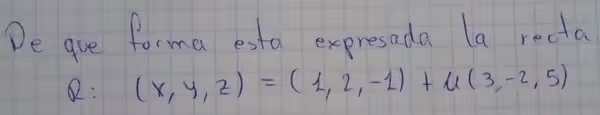 De que forma esta expresada la recta
R: (x, y, z) = (1, 2, -1) + u(3, -2, 5)